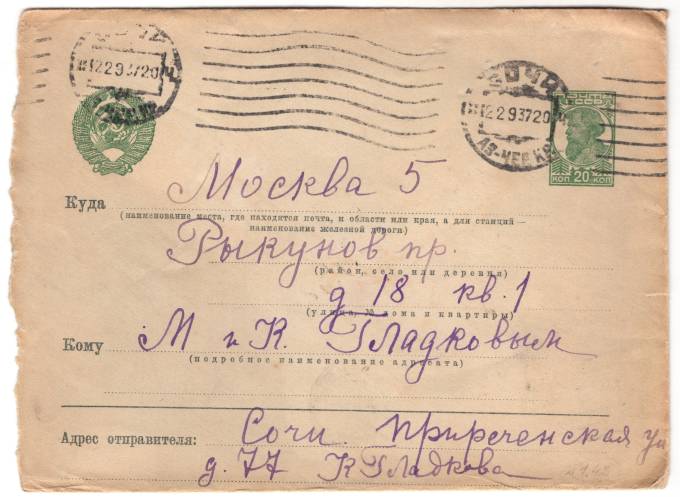 12 2 9 37 20
СОЧИ
12 2 9 37 20
АЗ-ЧЕР. КР.
СССР
КОП 20 КОП
Куда Москва 5
(наименование места, где находится почта, и области или края, а для станций —
наименование железной дороги)
Рыкунов пр.
(район, село или деревня)
д 18 кв. 1
(улица, № дома и квартиры)
Кому М и К. Гладковым
(подробное наименование адресата)
Адрес отправителя: Сочи. Приреченская ул
д. 77 К Гладкова